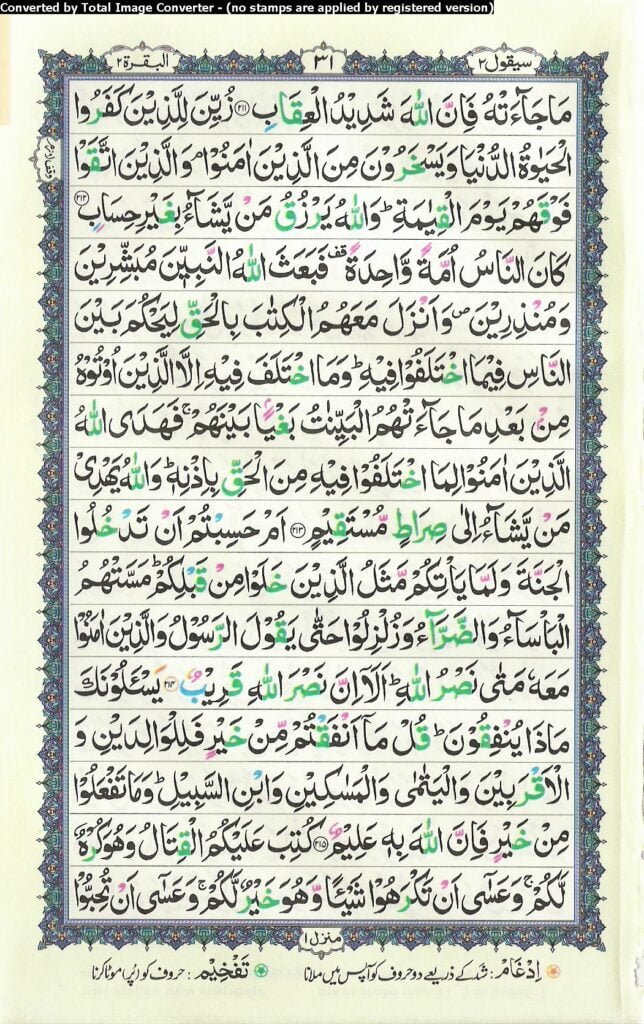 Converted by Total Image Converter - (no stamps are applied by registered version)
سيقول ٢
٣١
البقرة ٢
مَا جَآءَتْهُ فَاِنَّ اللّٰهَ شَدِيْدُ الْعِقَابِ ﴿٢١١﴾ زُيِّنَ لِلَّذِيْنَ كَفَرُوا
الْحَيٰوةُ الدُّنْيَا وَيَسْخَرُوْنَ مِنَ الَّذِيْنَ اٰمَنُوْا ۘ وَالَّذِيْنَ اتَّقَوْا
فَوْقَهُمْ يَوْمَ الْقِيٰمَةِ ؕ وَاللّٰهُ يَرْزُقُ مَنْ يَّشَآءُ بِغَيْرِ حِسَابٍ ﴿٢١٢﴾
كَانَ النَّاسُ اُمَّةً وَّاحِدَةً قف فَبَعَثَ اللّٰهُ النَّبِيّٖنَ مُبَشِّرِيْنَ
وَمُنْذِرِيْنَ ۪ وَاَنْزَلَ مَعَهُمُ الْكِتٰبَ بِالْحَقِّ لِيَحْكُمَ بَيْنَ
النَّاسِ فِيْمَا اخْتَلَفُوْا فِيْهِ ؕ وَمَا اخْتَلَفَ فِيْهِ اِلَّا الَّذِيْنَ اُوْتُوْهُ
مِنْۢ بَعْدِ مَا جَآءَتْهُمُ الْبَيِّنٰتُ بَغْيًۢا بَيْنَهُمْ ۚ فَهَدَى اللّٰهُ
الَّذِيْنَ اٰمَنُوْا لِمَا اخْتَلَفُوْا فِيْهِ مِنَ الْحَقِّ بِاِذْنِهٖ ؕ وَاللّٰهُ يَهْدِيْ
مَنْ يَّشَآءُ اِلٰى صِرَاطٍ مُّسْتَقِيْمٍ ﴿٢١٣﴾ اَمْ حَسِبْتُمْ اَنْ تَدْخُلُوا
الْجَنَّةَ وَلَمَّا يَاْتِكُمْ مَّثَلُ الَّذِيْنَ خَلَوْا مِنْ قَبْلِكُمْ ؕ مَسَّتْهُمُ
الْبَاْسَآءُ وَالضَّرَّآءُ وَزُلْزِلُوْا حَتّٰى يَقُوْلَ الرَّسُوْلُ وَالَّذِيْنَ اٰمَنُوْا
مَعَهٗ مَتٰى نَصْرُ اللّٰهِ ؕ اَلَاۤ اِنَّ نَصْرَ اللّٰهِ قَرِيْبٌ ﴿٢١٤﴾ يَسْـَٔلُوْنَكَ
مَاذَا يُنْفِقُوْنَ ؕ قُلْ مَاۤ اَنْفَقْتُمْ مِّنْ خَيْرٍ فَلِلْوَالِدَيْنِ وَ
الْاَقْرَبِيْنَ وَالْيَتٰمٰى وَالْمَسٰكِيْنِ وَابْنِ السَّبِيْلِ ؕ وَمَا تَفْعَلُوْا
مِنْ خَيْرٍ فَاِنَّ اللّٰهَ بِهٖ عَلِيْمٌ ﴿٢١٥﴾ كُتِبَ عَلَيْكُمُ الْقِتَالُ وَهُوَ كُرْهٌ
لَّكُمْ ۚ وَعَسٰۤى اَنْ تَكْرَهُوْا شَيْـًٔا وَّهُوَ خَيْرٌ لَّكُمْ ۚ وَعَسٰۤى اَنْ تُحِبُّوْا
منزل ١
اِدْغَام: شد کے ذریعے دو حروف کو آپس میں ملانا
تَفْخِيْم: حروف کو پُر (موٹا) کرنا